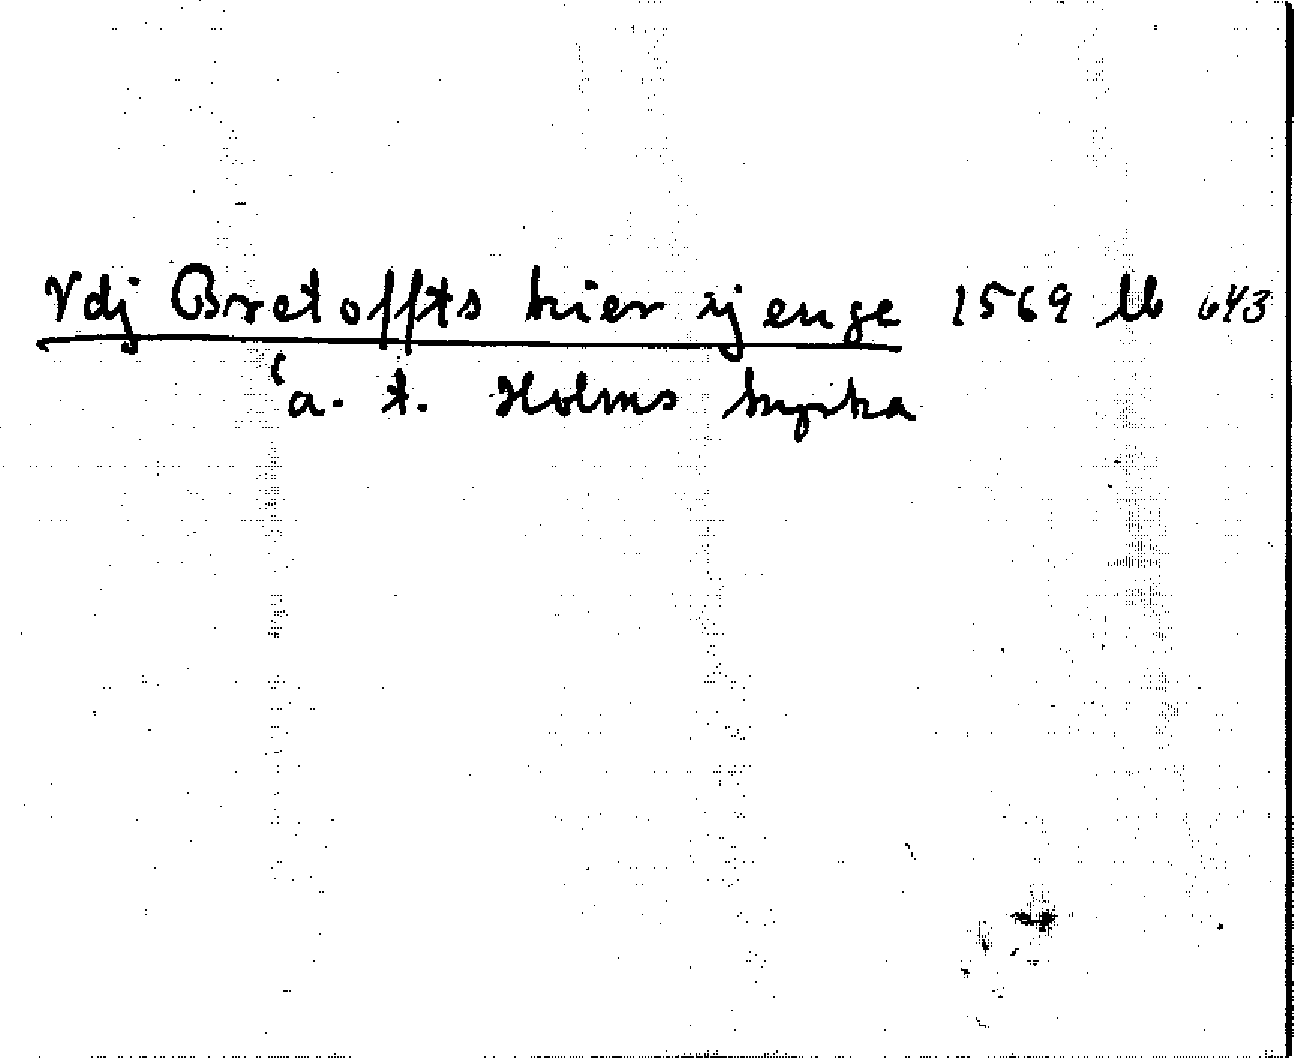 Vdj Bretoffts kier ij enge 1569 lb 643
(a. t. Holms kyrka